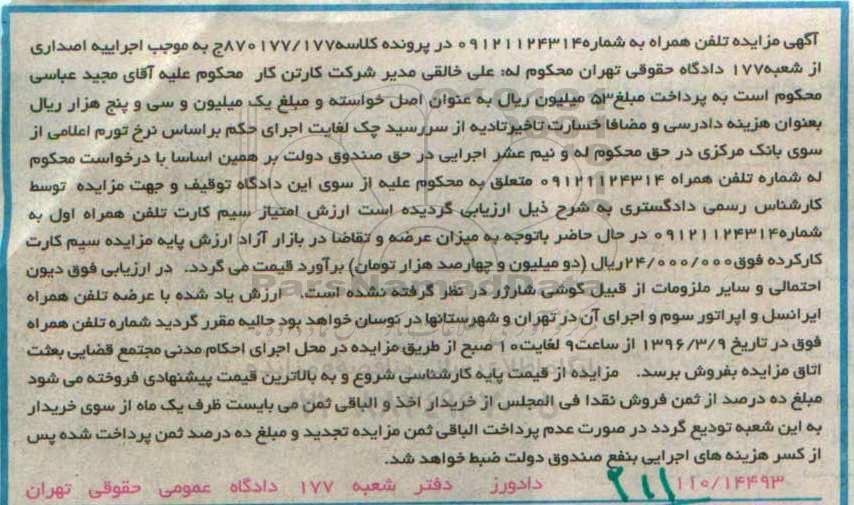 آگهی مزایده تلفن همراه به شماره۰۹۱۲۱۱۲۴۳۱۴ در پرونده کلاسه۸۷۰۱۷۷/۱۷۷ج به موجب اجراییه اصداری
از شعبه۱۷۷ دادگاه حقوقی تهران محکوم له: علی خالقی مدیر شرکت کارتن کار محکوم علیه آقای مجید عباسی
محکوم است به پرداخت مبلغ۵۳ میلیون ریال به عنوان اصل خواسته و مبلغ یک میلیون و سی و پنج هزار ریال
بعنوان هزینه دادرسی و مضافا خسارت تاخیرتادیه از سررسید چک لغایت اجرای حکم براساس نرخ تورم اعلامی از
سوی بانک مرکزی در حق محکوم له و نیم عشر اجرایی در حق صندوق دولت بر همین اساسا با درخواست محکوم
له شماره تلفن همراه ۰۹۱۲۱۱۲۴۳۱۴ متعلق به محکوم علیه از سوی این دادگاه توقیف و جهت مزایده توسط
کارشناس رسمی دادگستری به شرح ذیل ارزیابی گردیده است ارزش امتیاز سیم کارت تلفن همراه اول به
شماره۰۹۱۲۱۱۲۴۳۱۴ در حال حاضر باتوجه به میزان عرضه و تقاضا در بازار آزاد ارزش پایه مزایده سیم کارت
کارکرده فوق۲۴/۰۰۰/۰۰۰ریال (دو میلیون و چهارصد هزار تومان) برآورد قیمت می گردد. در ارزیابی فوق دیون
احتمالی و سایر ملزومات از قبیل گوشی شارژر در نظر گرفته نشده است. ارزش یاد شده با عرضه تلفن همراه
ایرانسل و اپراتور سوم و اجرای آن در تهران و شهرستانها در نوسان خواهد بود حالیه مقرر گردید شماره تلفن همراه
فوق در تاریخ ۱۳۹۶/۳/۹ از ساعت۹ لغایت۱۰ صبح از طریق مزایده در محل اجرای احکام مدنی مجتمع قضایی بعثت
اتاق مزایده بفروش برسد. مزایده از قیمت پایه کارشناسی شروع و به بالاترین قیمت پیشنهادی فروخته می شود
مبلغ ده درصد از ثمن فروش نقدا فی المجلس از خریدار اخذ و الباقی ثمن می بایست ظرف یک ماه از سوی خریدار
به این شعبه تودیع گردد در صورت عدم پرداخت الباقی ثمن مزایده تجدید و مبلغ ده درصد ثمن پرداخت شده پس
از کسر هزینه های اجرایی بنفع صندوق دولت ضبط خواهد شد.
۱۱۰/۱۴۴۹۳ دادورز دفتر شعبه ۱۷۷ دادگاه عمومی حقوقی تهران
ParsNamadData